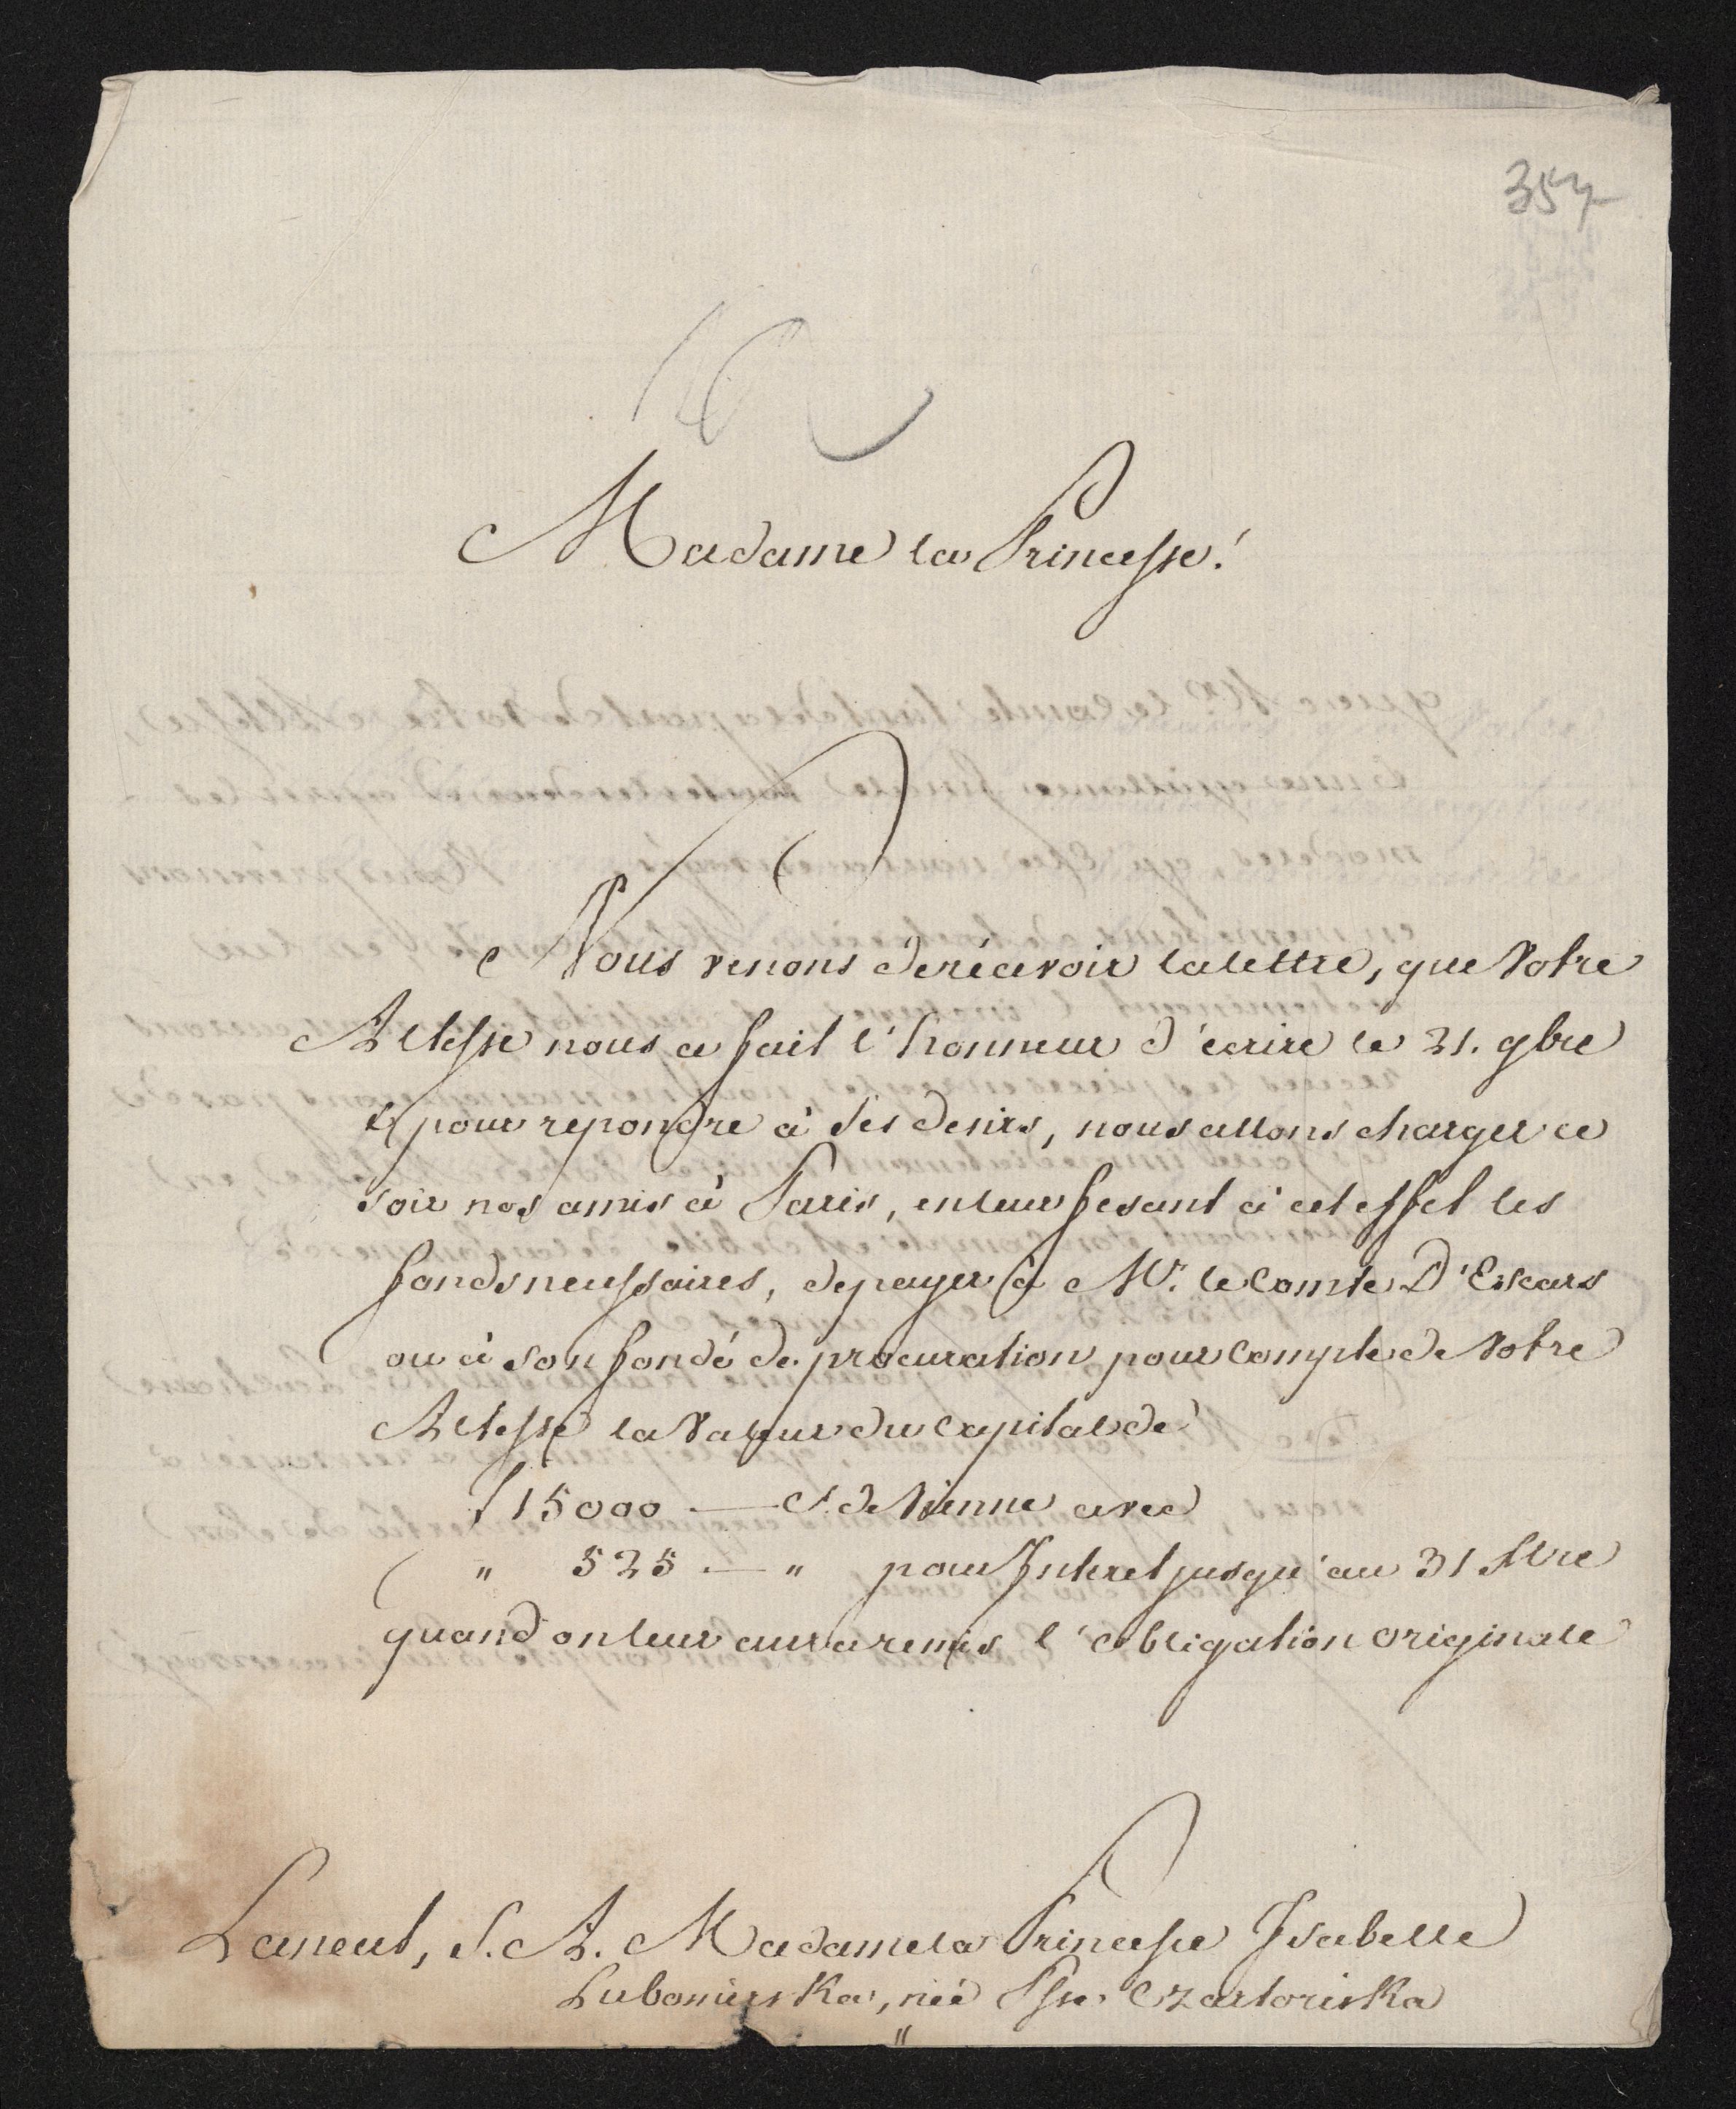 357
Madame la Princesse!
Nous venons de récevoir la lettre, que Votre
Altesse nous a fait l'honneur d'écrire le 21. 9bre
& pour repondre à ses desirs, nous allons charger ce
soir nos amis à Paris, en leur fesant à cet effet les
fonds necessaires, de payer à Mr. le Comte D'Escars
ou à son fondé de procuration pour Compte de Votre
Altesse la Valeur du Capital de
f 15000 — Ct. de Vienne avec
" 525 — " pour Interet jusqu'au 31
quand on leur aura remis l'obligation originale
Lancut, S. A. Madame la Princesse Isabelle
Lubomirska, née Psse. Czartoriska
"